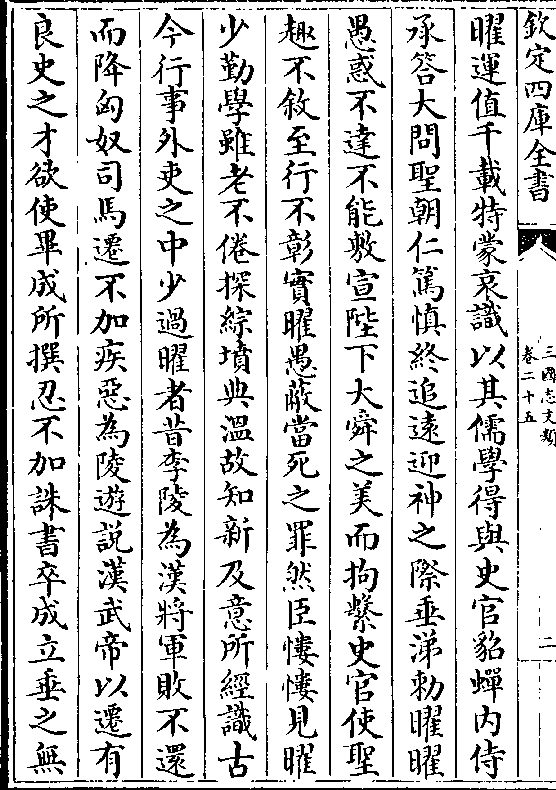 欽定四庫全書
三國志文類
卷二十五
二
曜運值千載特蒙哀識以其儒學得與史官貂蟬內侍
承答大問聖朝仁篤慎終追遠迎神之際垂涕勅曜曜
愚惑不達不能敷宣陛下大舜之美而拘繫史官使聖
趣不敘至行不彰實曜愚蔽當死之罪然臣慺慺見曜
少勤學雖老不倦探綜墳典溫故知新及意所經識古
今行事外吏之中少過曜者昔李陵為漢將軍敗不還
而降匈奴司馬遷不加疾惡為陵遊説漢武帝以遷有
良史之才欲使畢成所撰忍不加誅書卒成立垂之無